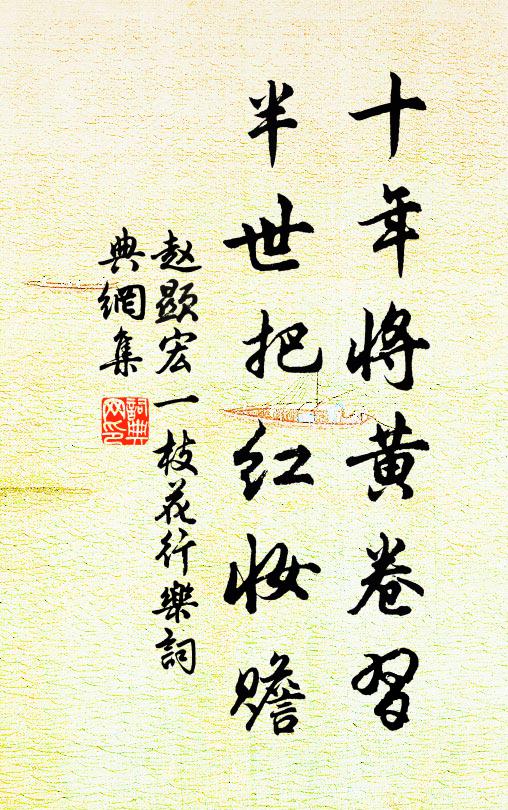 十年将黄卷习
半世把红妆赡
赵显宏一枝花行樂詞
典網集
詞典网印